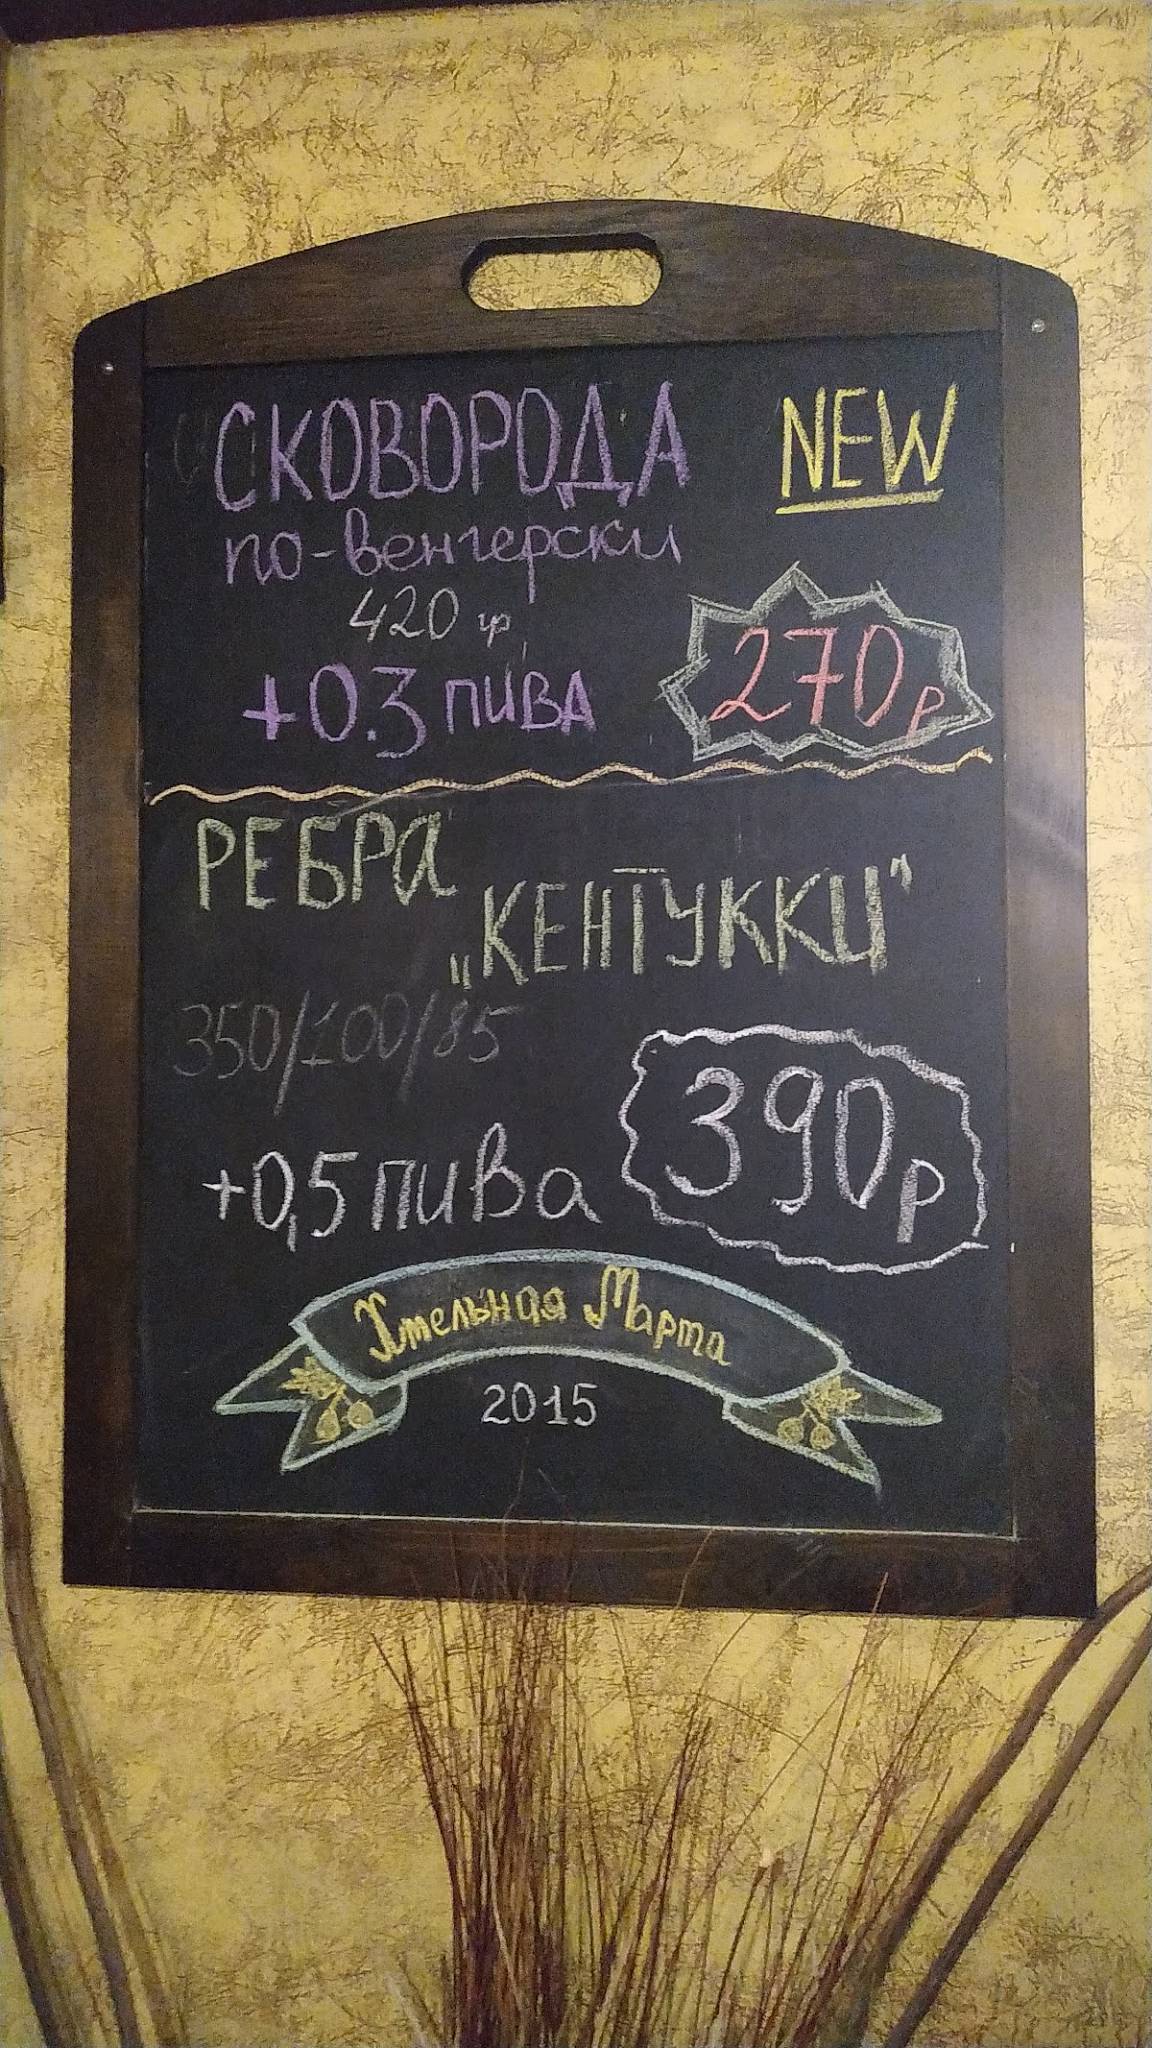 СКОВОРОДА NEW
по-венгерски
420 гр,
+0.3 ПИВА 270р
РЕБРА
„КЕНТУККИ"
350/100/85
+0,5 пива 390р
Хмельная Марта
2015